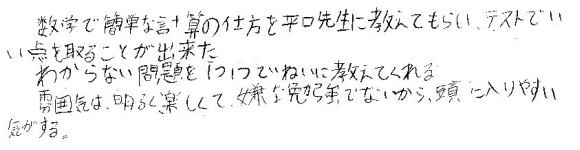 数学で簡単な計算の仕方を平口先生に教えてもらい、テストでい
い点を取ることが出来た
わからない問題を1つ1つていねいに教えてくれる
雰囲気は、明るく楽しくて、嫌な勉強でないから、頭に入りやすい
気がする。